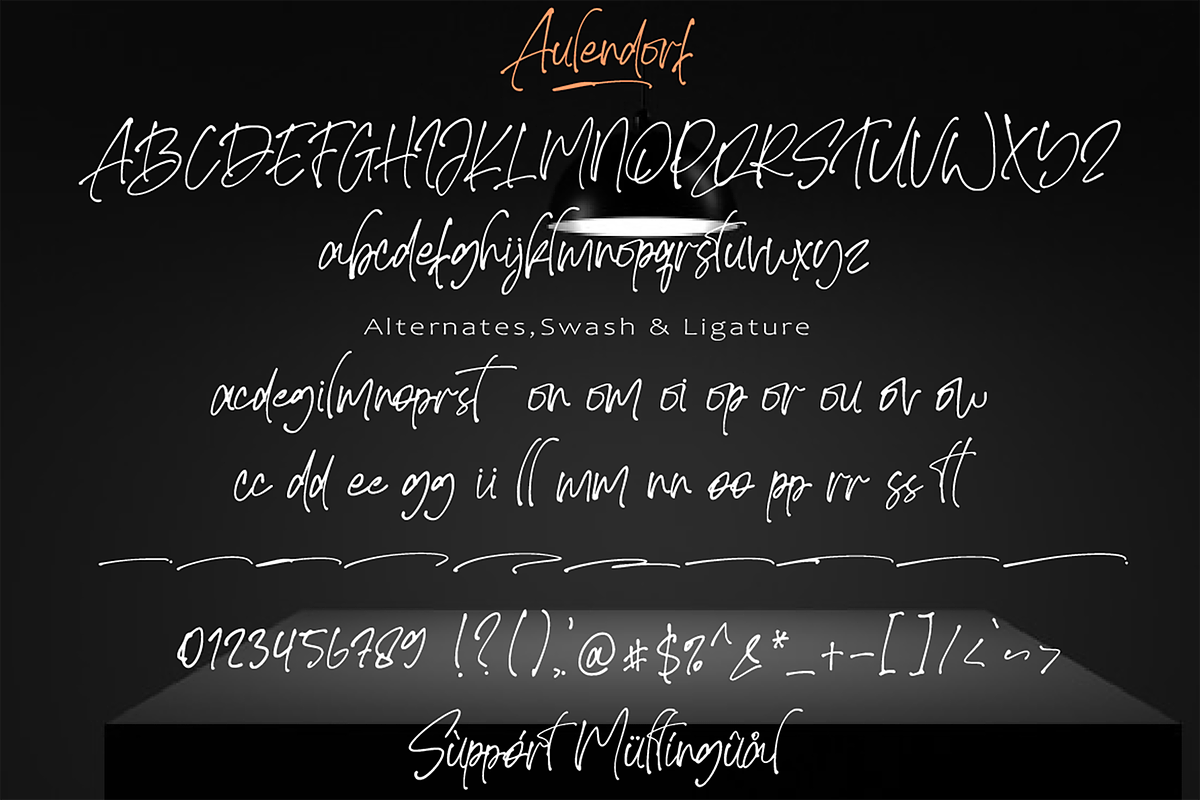 Aulendorf
ABCDEFGHIJKLMNOPQRSTUVWXYZ
abcdefghijklmnopqrstuvwxyz
Alternates,Swash & Ligature
acdegilmnoprst on om oi op or ou ov ow
cc dd ee gg ii ll mm nn oo pp rr ss tt
0123456789 !?().,:;'@#$%^&*_+-[]/<`~>
Sùppórt Mültíngûål